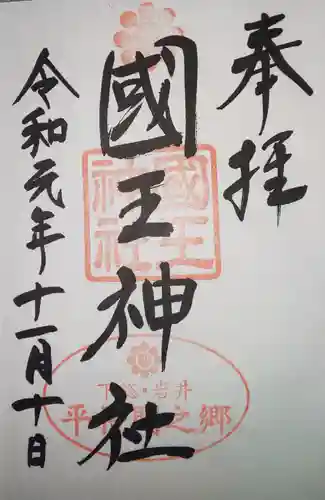 奉拝
國王神社
令和元年十一月十日
國王
神社
下総・岩井
平将門之郷